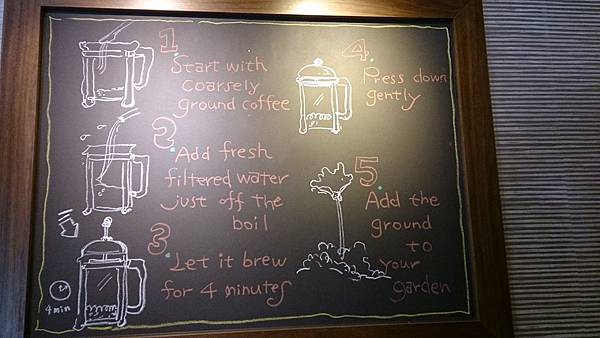 1.
Start with
coarsely
ground coffee
2.
Add fresh
filtered water
just off the
boil
3.
Let it brew
for 4 minutes
4 min
4.
Press down
gently
5.
Add the
ground
to
your
garden